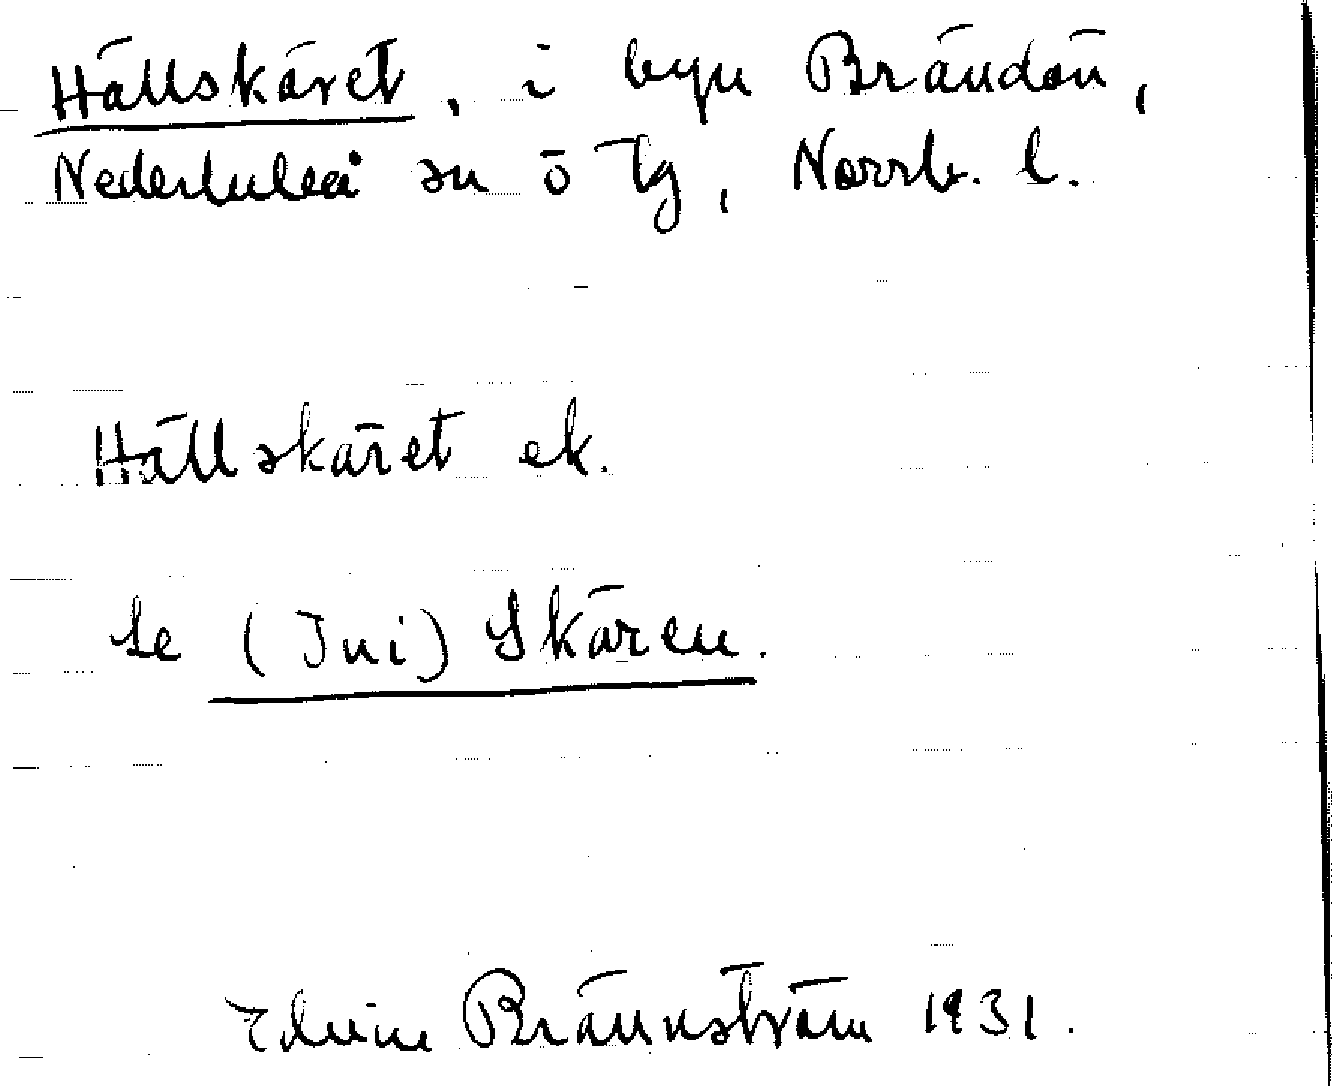 Hällskäret, i byn Brändön,
Nederluleå sn ö tg, Norrb. l.
Hällskäret ek.
Se (Ini) Skären.
Edvin Brännström 1931.